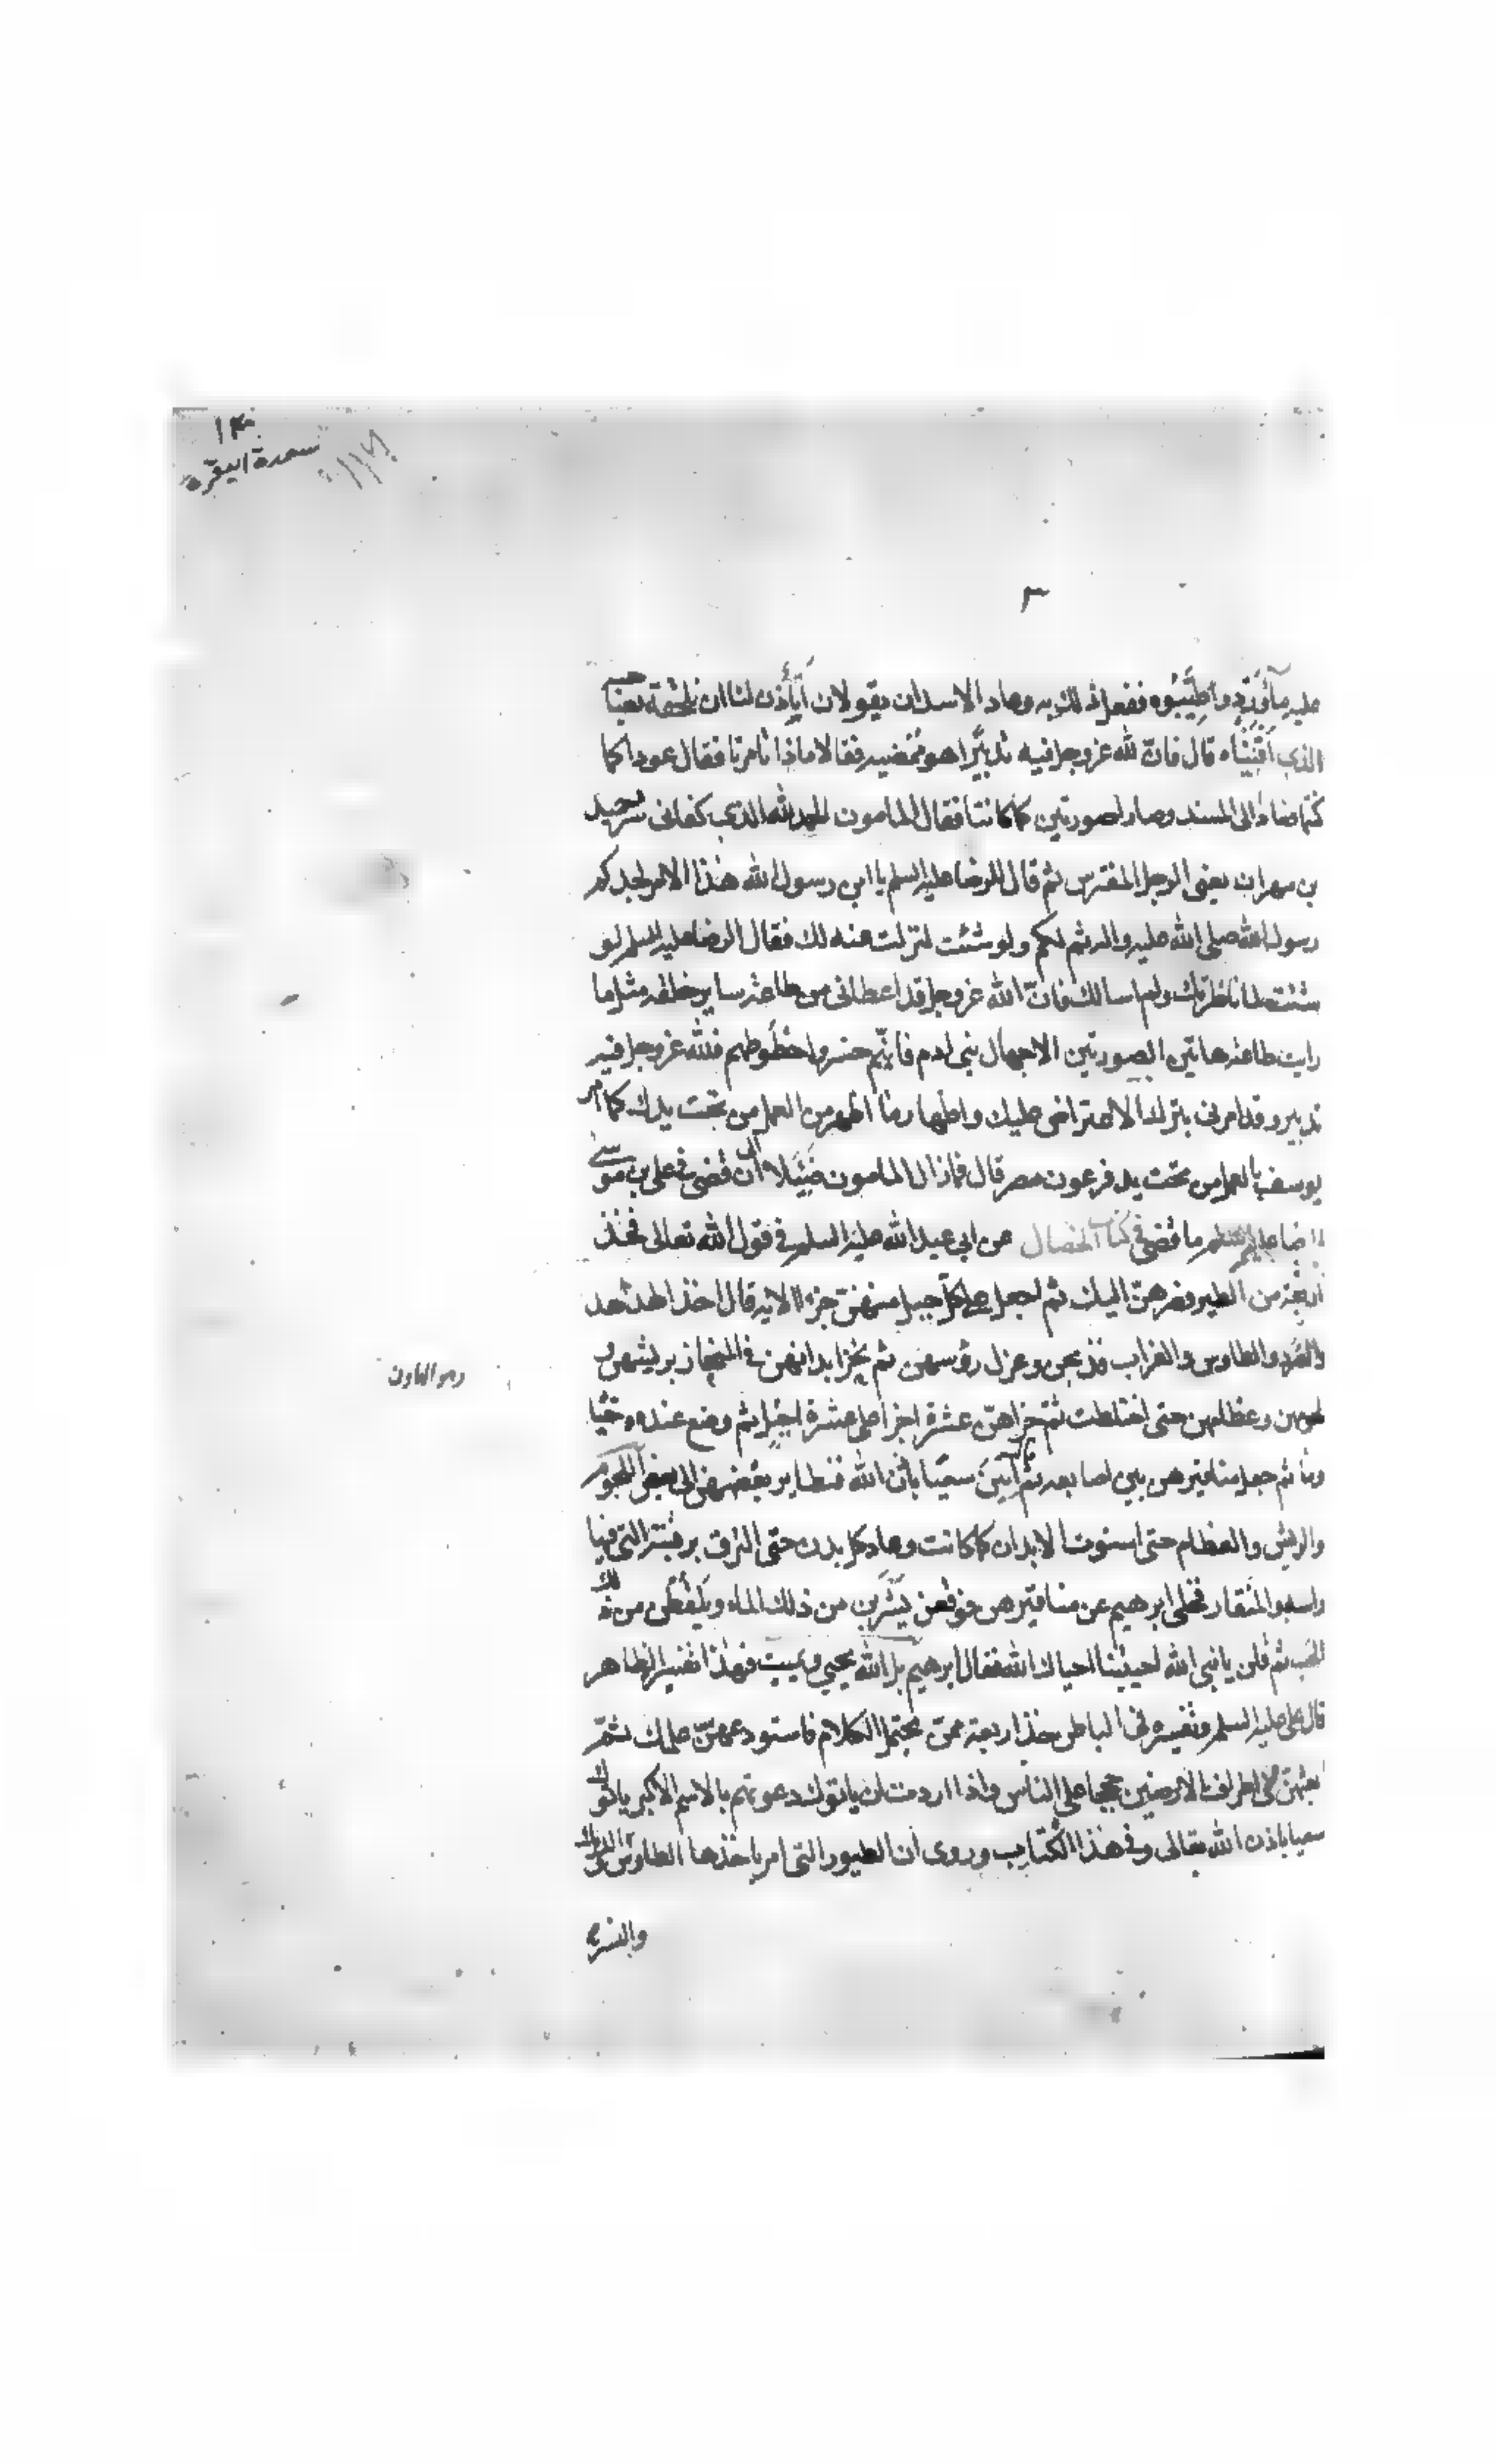 سورة البقره
عليه ماء ورد وطيبوه ففعل ذلك به وعاد الاسدان يقولان أتأذن لنا ان نلحقه بصاحبه
الذي أفنيناه قال فانّ لله عز وجل فيه تدبيرا هو ممضيه فقالا ماذا تامرنا فقال عودا كما
كنتما فعادا الى المسند وصارا صورتين كما كانتا فقال المامون الحمد لله الذي كفاني شر حميد
بن مهران يعني الرجل المفترس ثم قال للرضا عليه السلم يا ابن رسول الله هذا الامر لجدكم
رسول الله صلى الله عليه واله ثم لكم ولو شئت لنزلت عنه لك فقال الرضا عليه السلم لو
شئت لما ناظرتك ولم اسالك فانّ الله عز وجل قد اعطاني من طاعة ساير خلقه مثل ما
رايت من طاعة هاتين الصورتين الا جهال بني ادم فانهم خسروا حظوظهم فلله عز وجل فيه
تدبير وقد امرني بترك الاعتراض عليك واظهار ما اظهر من العمل من تحت يدك كما امر
يوسف بالعمل من تحت يد فرعون مصر قال فما زال المامون ضئيلا الى ان قضى في علي بن موسى
الرضا عليهم السلم ما قضى في كتاب الخصال عن ابي عبد الله عليه السلم في قول الله تعالى فخذ
اربعة من الطير فصرهن اليك ثم اجعل على كل جبل منهن جزءا الاية قال اخذ الهدهد
والصرد والطاوس والغراب فذبحهن وعزل رؤسهن ثم نخز ابدانهن في المنخاز بريشهن و
لحومهن وعظامهن حتى اختلطت ثم جزاهن عشرة اجزا على عشرة اجبل ثم وضع عنده حبا
وماء ثم جعل مناقيرهن بين اصابعه ثم قال آتين سعيا باذن الله فتطاير بعضهن الى بعض اللحوم
والريش والعظام حتى استوت الابدان كما كانت وجاء كل بدن حتى التزق برقبته التي فيها
راسه والمنقار فخلى ابرهيم عن مناقيرهن فوقعن يشربن من ذلك الماء ويلتقطن من ذلك
الحب ثم قلن يا نبي الله احييتنا احياك الله فقال ابرهيم بل الله يحيي ويميت فهذا تفسير الظاهر
قال عليه السلم وتفسيره في الباطن خذ اربعة ممن يحتمل الكلام فاستودعهن علمك ثم
ابعثهن في اطراف الارضين حججا على الناس واذا اردت ان ياتوك دعوتهم بالاسم الاكبر ياتوك
سعيا باذن الله تعالى وفي هذا الكتاب وروى ان الطيور التي امر باخذها الطاوس
وهو الهاون